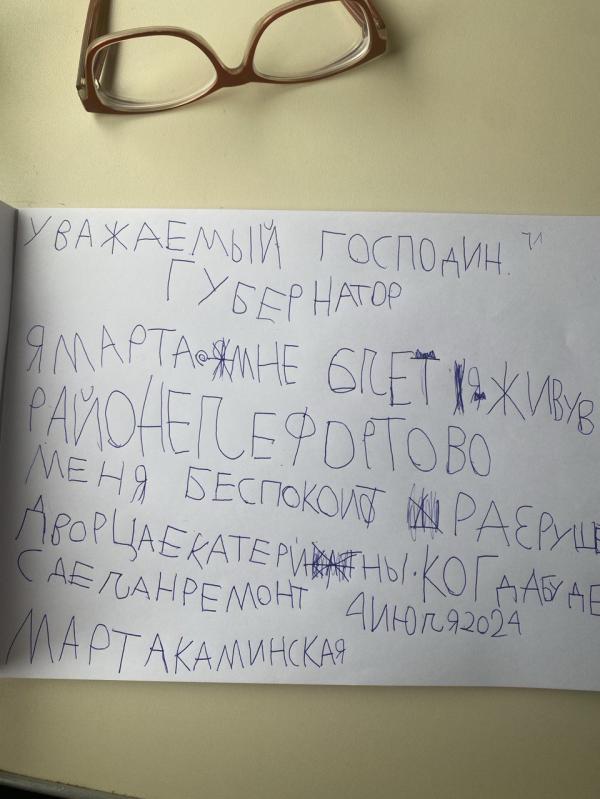 УВАЖАЕМЫЙ ГОСПОДИН.
ГУБЕРНАТОР
Я МАРТА МНЕ 6 ЛЕТ Я ЖИВУ В
РАЙОНЕ ЛЕФОРТОВО
МЕНЯ БЕСПОКОИТ РАЕРУШЕ
ДВОРЦА ЕКАТЕРИНЫ. КОГДА БУДЕ
СДЕЛАН РЕМОНТ 4 ИЮЛЯ 2024
МАРТА КАМИНСКАЯ